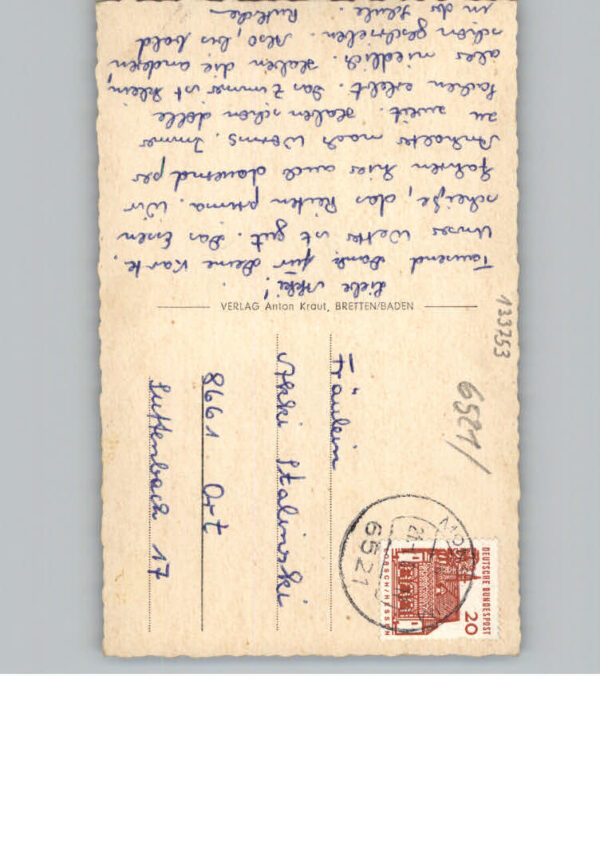 Liebe Akki!
Tausend Dank für Deine Karte.
Unser Wetter ist gut. Das Essen
scheiße, das Reiten prima. Wir
fahren hier auch dauernd per
Anhalter nach Worms. Immer
zu zweit. Haben schon dolle
Sachen erlebt. Das Zimmer ist klein,
aber niedlich. Haben die anderen
schon geschrieben. Also, bis bald
in der Schule.
VERLAG Anton Kraut, BRETTEN/BADEN
Fräulein
Akki Stalinski
8661 Ort
Luttenbach 17
133753
6521/
6521
DEUTSCHE BUNDESPOST
20
LORSCH/HESSEN